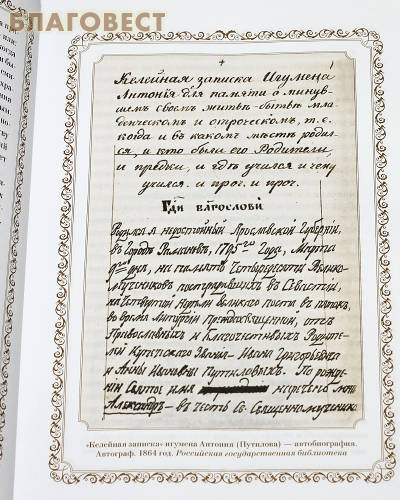 БЛАГОВЕСТ
Келейная записка Игумена
Антонія для памяти о минув-
шемъ своемъ житьѣ-бытьѣ мла-
денческомъ и отроческомъ, т. е.
когда и въ какомъ мѣстѣ родил-
ся, и кто были его Родители,
и предки, и гдѣ учился и чему
учился. и проч. и проч.
Гди благослови
Родился я недостойный Ярославской Губерніи,
въ Городѣ Романовѣ, 1795го Года, Марта
9го дня, на память Четыредесяти Велико-
мучениковъ пострадавшихъ въ Севастіи,
на четвертой недѣли великаго поста въ пятокъ,
во время Литургіи Преждесвященной, отъ
Православныхъ и Благочестивыхъ Родите-
лей Купеческаго Званія Ивана Григорьевича
и Анны Ивановны Путиловыхъ. По рожде-
ніи Святое имя наречено мнѣ
Александръ – въ честь Св. Священномученика
«Келейная записка» игумена Антония (Путилова) — автобиография.
Автограф. 1864 год. Российская государственная библиотека